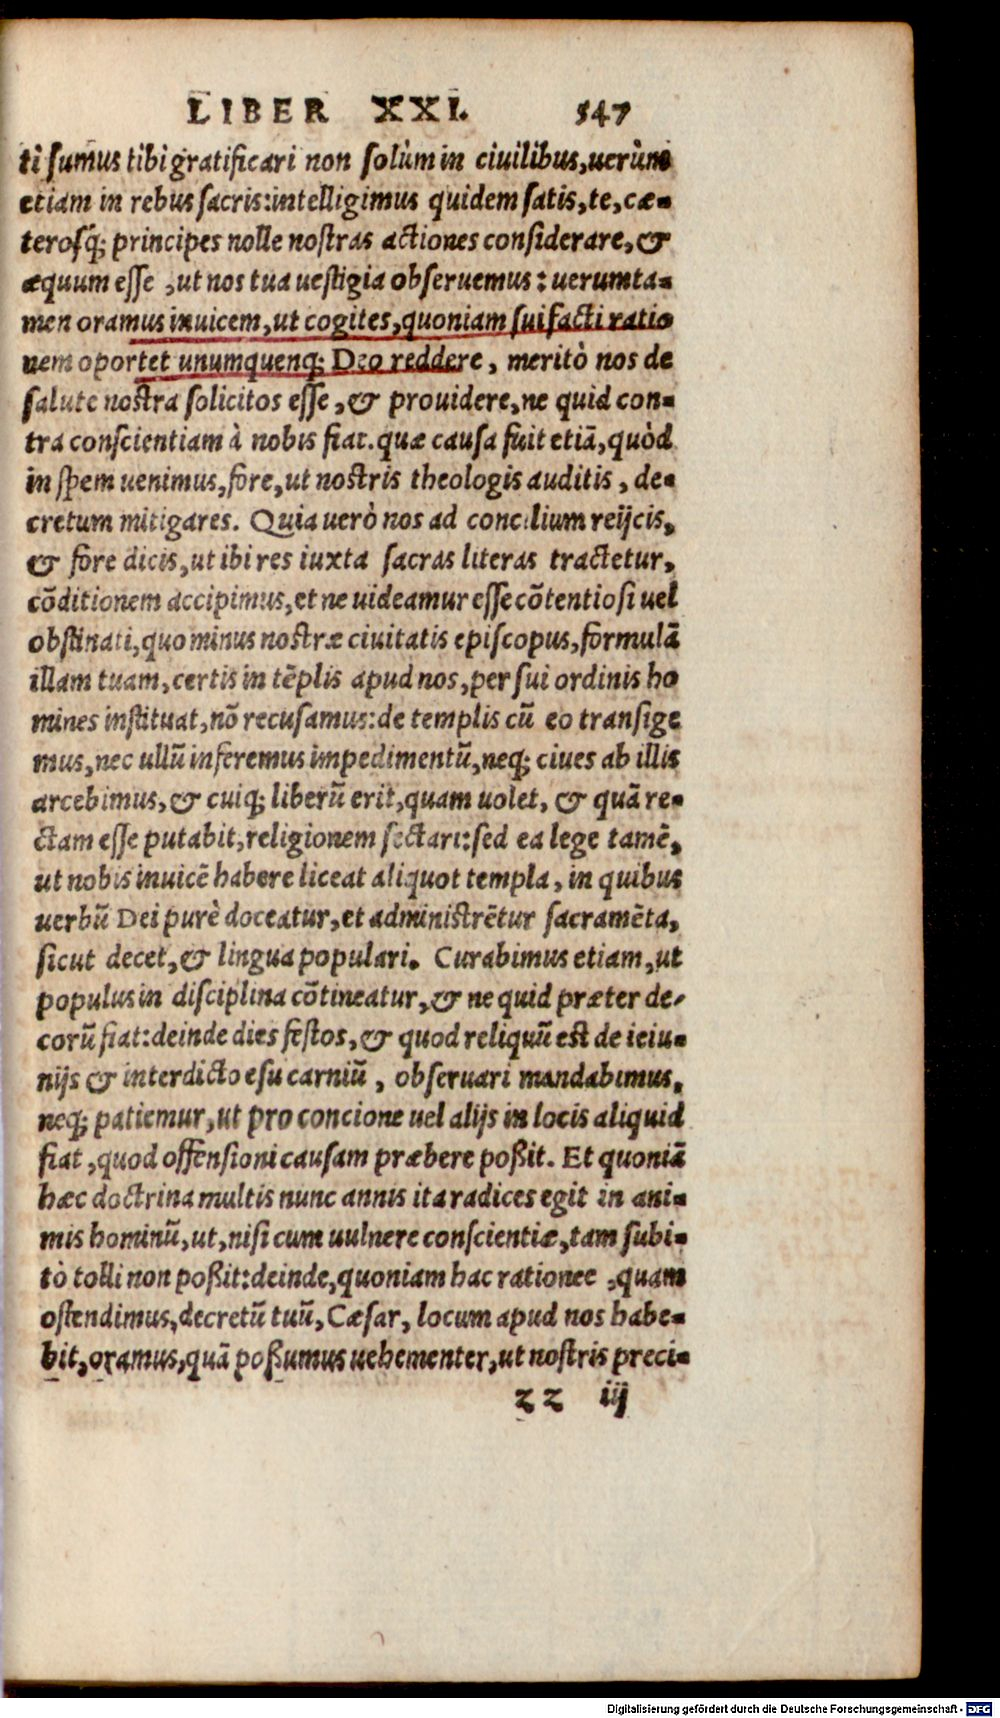 LIBER XXI. 547
ti sumus tibi gratificari non solùm in ciuilibus, uerùm
etiam in rebus sacris: intelligimus quidem satis, te, cæ-
terosq; principes nolle nostras actiones considerare, &
æquum esse, ut nos tua uestigia obseruemus: uerumta-
men oramus inuicem, ut cogites, quoniam sui facti ratio
nem oportet unumquenq; Deo reddere, meritò nos de
salute nostra solicitos esse, & prouidere, ne quid con-
tra conscientiam à nobis fiat. quæ causa fuit etiā, quòd
in spem uenimus, fore, ut nostris theologis auditis, de-
cretum mitigares. Quia uerò nos ad concilium reijcis,
& fore dicis, ut ibi res iuxta sacras literas tractetur,
cōditionem accipimus, et ne uideamur esse cōtentiosi uel
obstinati, quo minus nostræ ciuitatis episcopus, formulā
illam tuam, certis in tēplis apud nos, per sui ordinis ho
mines instituat, nō recusamus: de templis cū eo transige
mus, nec ullū inferemus impedimentū, neq; ciues ab illis
arcebimus, & cuiq; liberū erit, quam uolet, & quā re-
ctam esse putabit, religionem sectari: sed ea lege tamē,
ut nobis inuicē habere liceat aliquot templa, in quibus
uerbū Dei purè doceatur, et administrētur sacramēta,
sicut decet, & lingua populari. Curabimus etiam, ut
populus in disciplina cōtineatur, & ne quid præter de-
corū fiat: deinde dies festos, & quod reliquū est de ieiu-
nijs & interdicto esu carniū, obseruari mandabimus,
neq; patiemur, ut pro concione uel alijs in locis aliquid
fiat, quod offensioni causam præbere poßit. Et quoniā
hæc doctrina multis nunc annis ita radices egit in ani-
mis hominū, ut, nisi cum uulnere conscientiæ, tam subi-
tò tolli non poßit: deinde, quoniam hac rationee, quam
ostendimus, decretū tuū, Cæsar, locum apud nos habe-
bit, oramus, quā poßumus uehementer, ut nostris preci-
zz iij
Digitalisierung gefördert durch die Deutsche Forschungsgemeinschaft - DFG